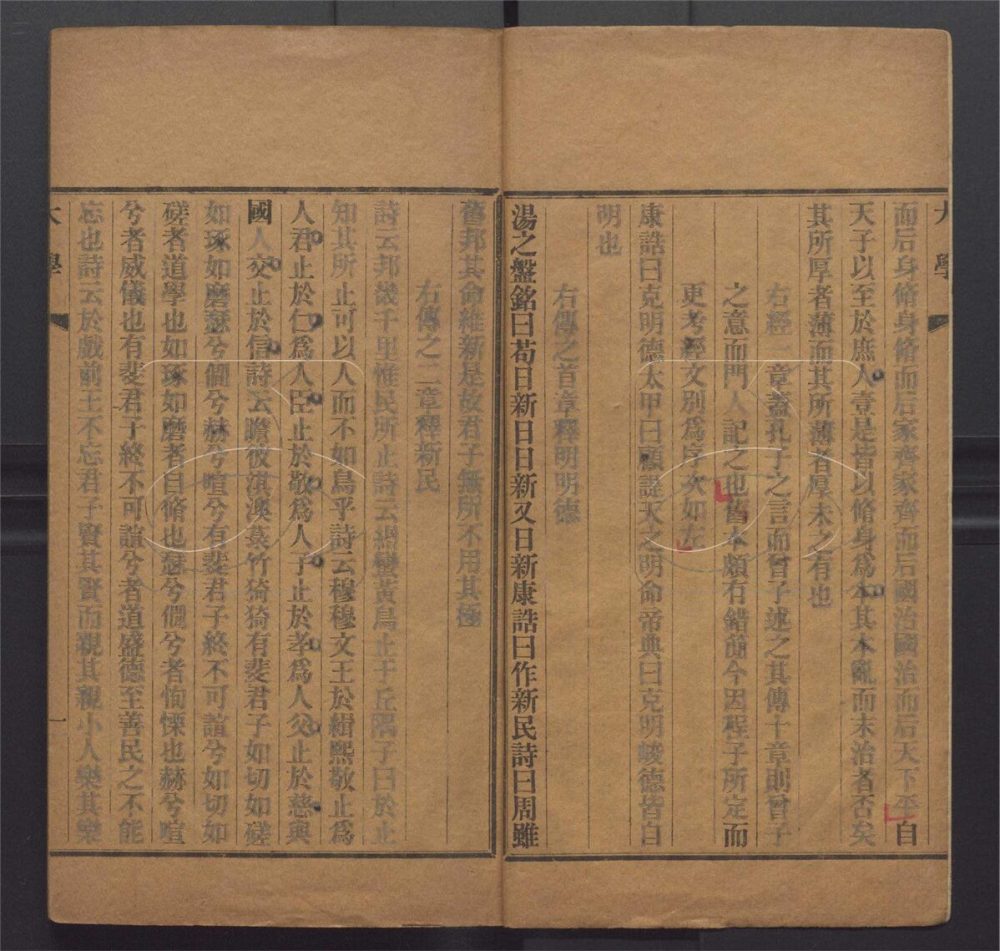 大學
而后身脩身脩而后家齊家齊而后國治國治而后天下平自
天子以至於庶人壹是皆以脩身為本其本亂而末治者否矣
其所厚者薄而其所薄者厚未之有也
右經一章蓋孔子之言而曾子述之其傳十章則曾子
之意而門人記之也舊本頗有錯簡今因程子所定而
更考經文別為序次如左
康誥曰克明德太甲曰顧諟天之明命帝典曰克明峻德皆自
明也
右傳之首章釋明明德
湯之盤銘曰苟日新日日新又日新康誥曰作新民詩曰周雖
舊邦其命維新是故君子無所不用其極
右傳之二章釋新民
詩云邦畿千里惟民所止詩云緡蠻黃鳥止于丘隅子曰於止
知其所止可以人而不如鳥乎詩云穆穆文王於緝熙敬止為
人君止於仁為人臣止於敬為人子止於孝為人父止於慈與
國人交止於信詩云瞻彼淇澳菉竹猗猗有斐君子如切如磋
如琢如磨瑟兮僩兮赫兮喧兮有斐君子終不可諠兮如切如
磋者道學也如琢如磨者自脩也瑟兮僩兮者恂慄也赫兮喧
兮者威儀也有斐君子終不可諠兮者道盛德至善民之不能
忘也詩云於戲前王不忘君子賢其賢而親其親小人樂其樂
大學
一